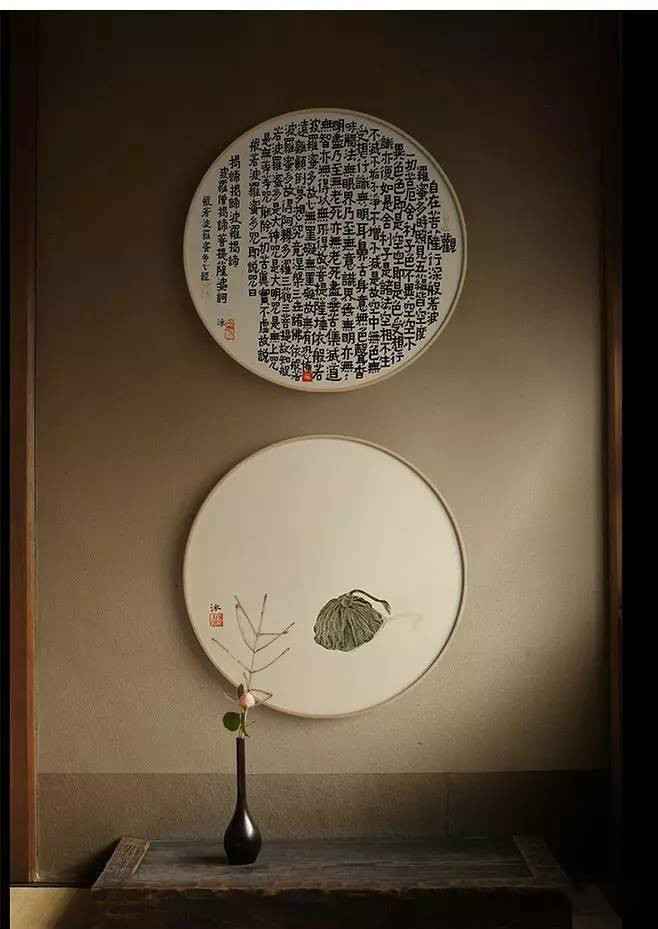 觀
自在菩薩行深般若波
羅蜜多時照見五蘊皆空度
一切苦厄舍利子色不異空空不
異色色即是空空即是色受想行
識亦復如是舍利子是諸法空相不生
不滅不垢不淨不增不減是故空中無色無
受想行識無眼耳鼻舌身意無色聲香
味觸法無眼界乃至無意識界無無明亦無
明盡乃至無老死亦無老死盡無苦集滅道
無智亦無得以無所得故菩提薩埵依般若
波羅蜜多故心無罣礙無罣礙故無有恐怖
遠離顛倒夢想究竟涅槃三世諸佛依般若
波羅蜜多故得阿耨多羅三藐三菩提故知般
若波羅蜜多是大神咒是大明咒是無上咒
是無等等咒能除一切苦真實不虛故說
般若波羅蜜多咒即說咒曰
揭諦揭諦波羅揭諦
波羅僧揭諦菩提薩婆訶
般若波羅蜜多心經
泳
泳